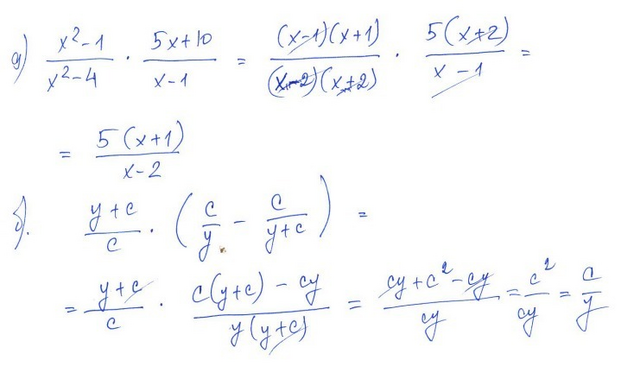 а) (x²-1)/(x²-4) · (5x+10)/(x-1) = ((x-1)(x+1))/((x-2)(x+2)) · (5(x+2))/(x-1) =
= (5(x+1))/(x-2)
б). (y+c)/c · (c/y - c/(y+c)) =
= (y+c)/c · (c(y+c) - cy)/(y(y+c)) = (cy+c²-cy)/(cy) = c²/(cy) = c/y